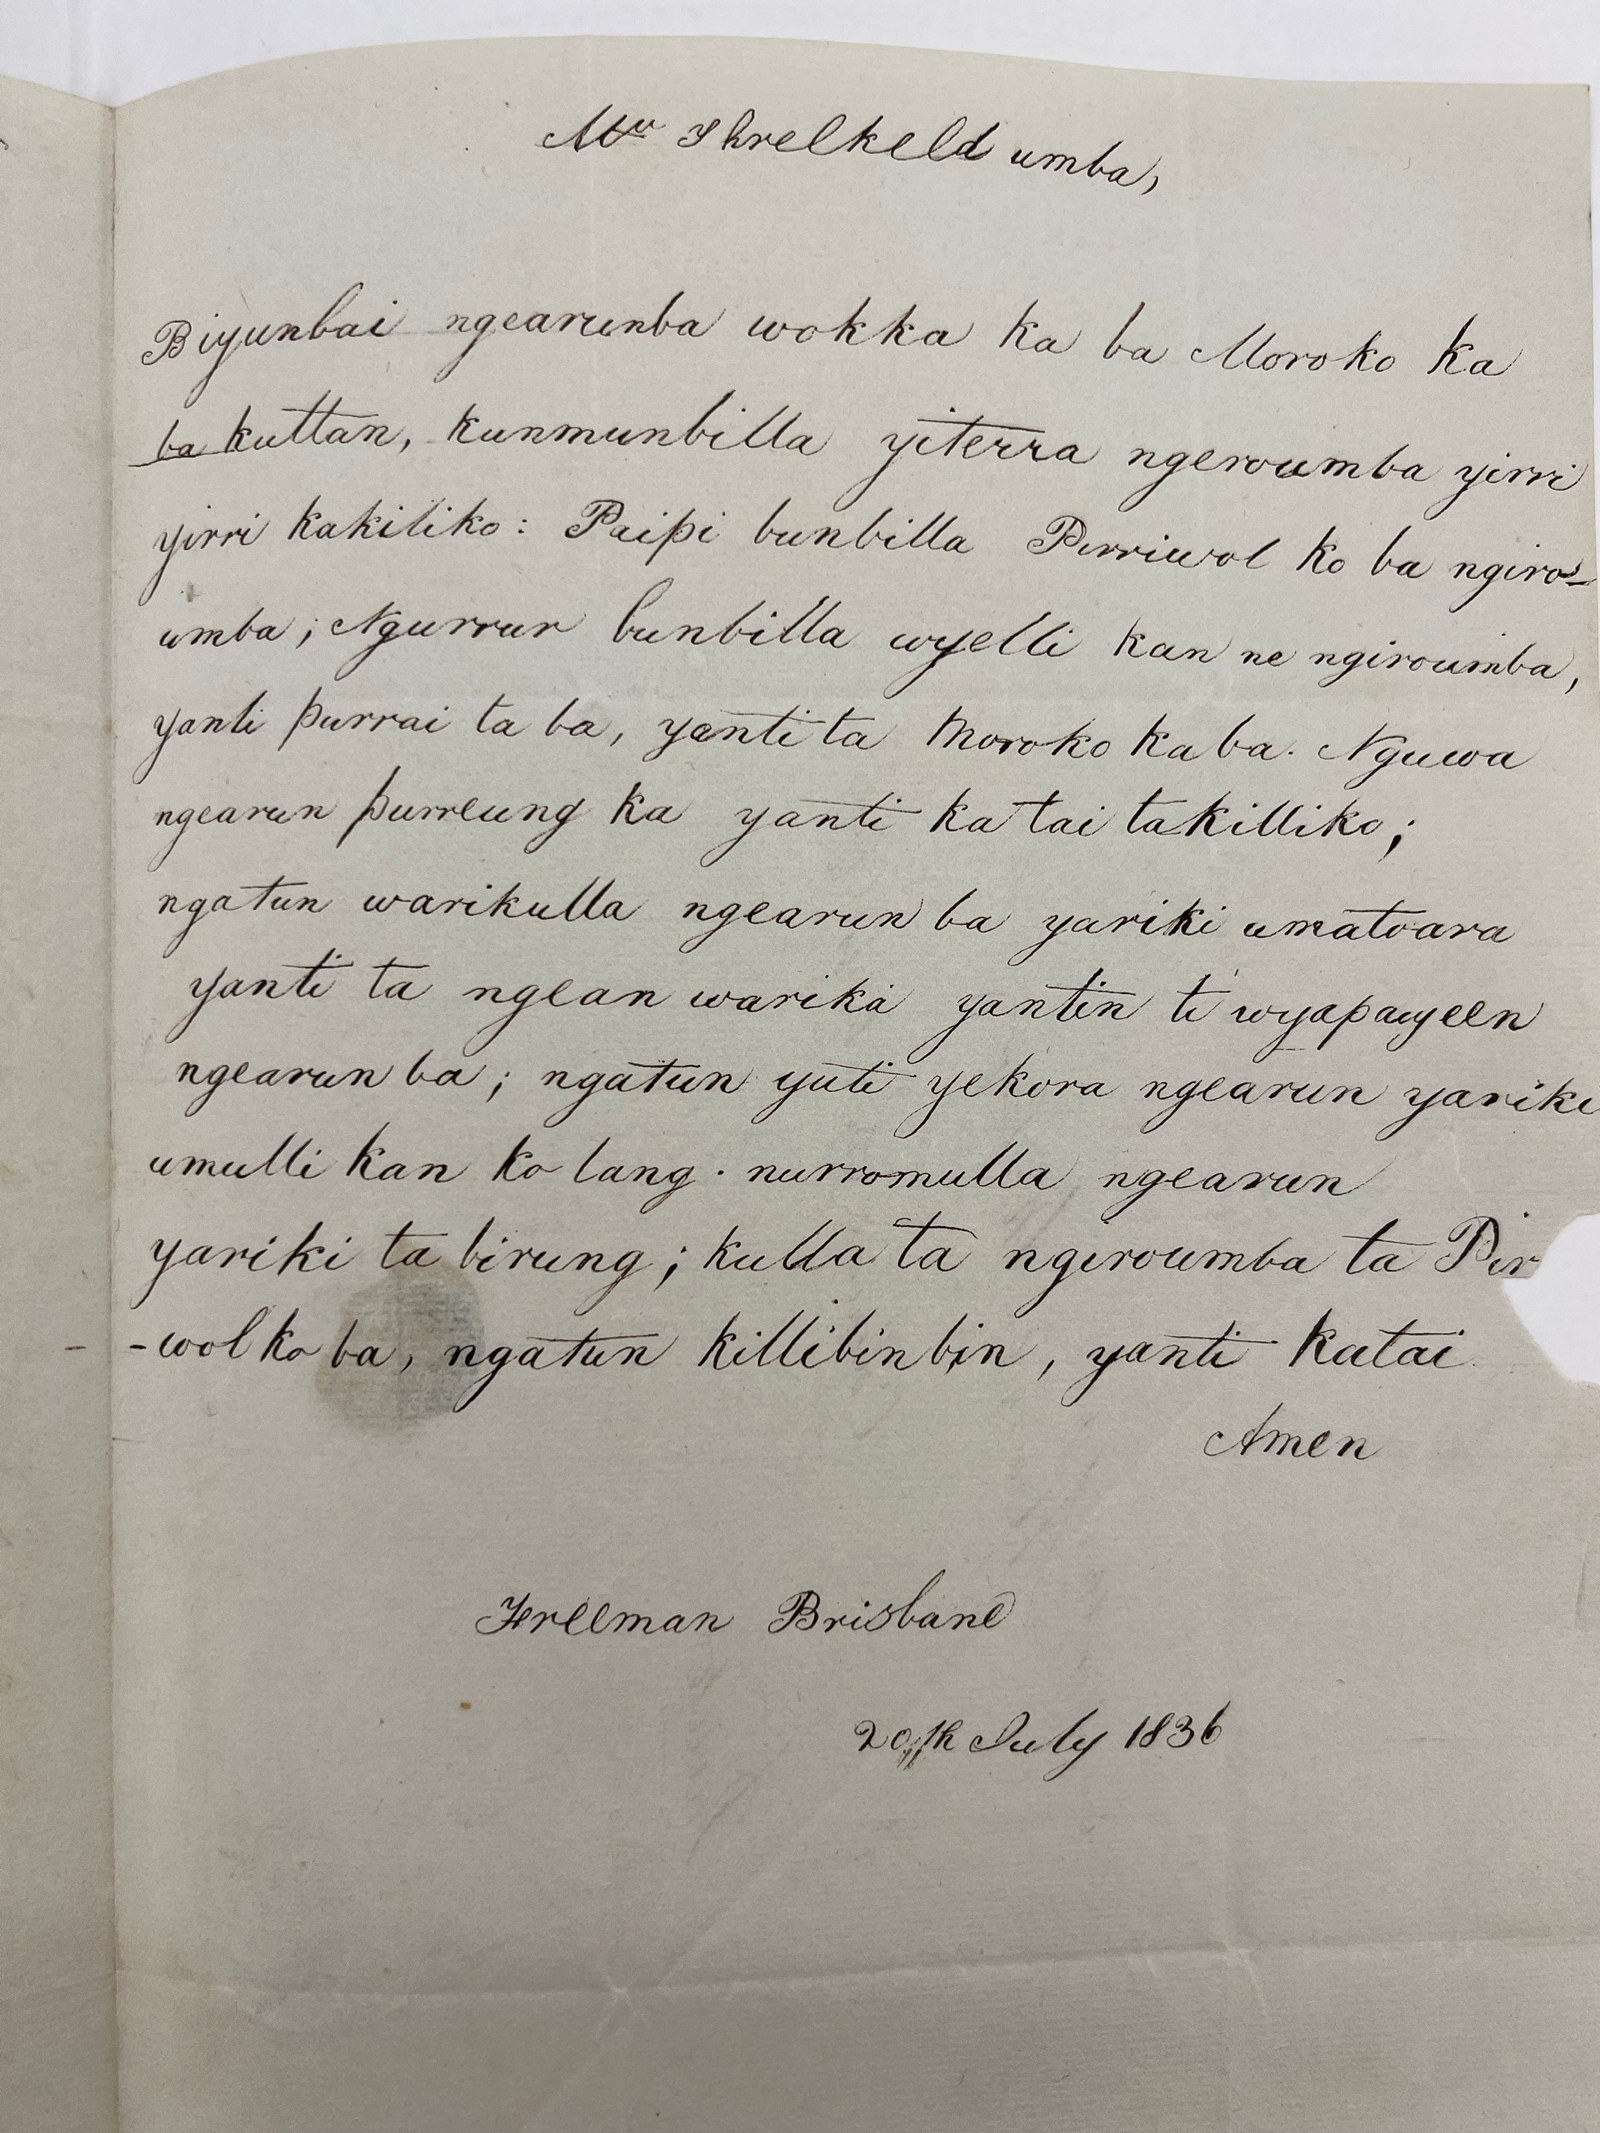 Mr Threlkeld umba,
Biyunbai ngearunba wokka ka ba Moroko ka
ba kuttan, kunmunbilla yiterra ngeroumba yirri
yirri kakiliko: Paipi bunbilla Pirriwol ko ba ngiro-
umba; Ngurrur bunbilla wyelli kan ne ngiroumba,
yanti purrai ta ba, yanti ta Moroko ka ba. Nguwa
ngearun purreung ka yanti ka tai takilliko;
ngatun warikulla ngearun ba yariki umatoara
yanti ta ngean warika yantin ti wyapayeen
ngearun ba; ngatun yuti yekora ngearun yariki
umulli kan ko lang. nurromulla ngearun
yariki ta birung; kulla ta ngiroumba ta Pir
-wol ko ba, ngatun killibinbin, yanti katai
Amen
Freeman Brisbane
20th July 1836